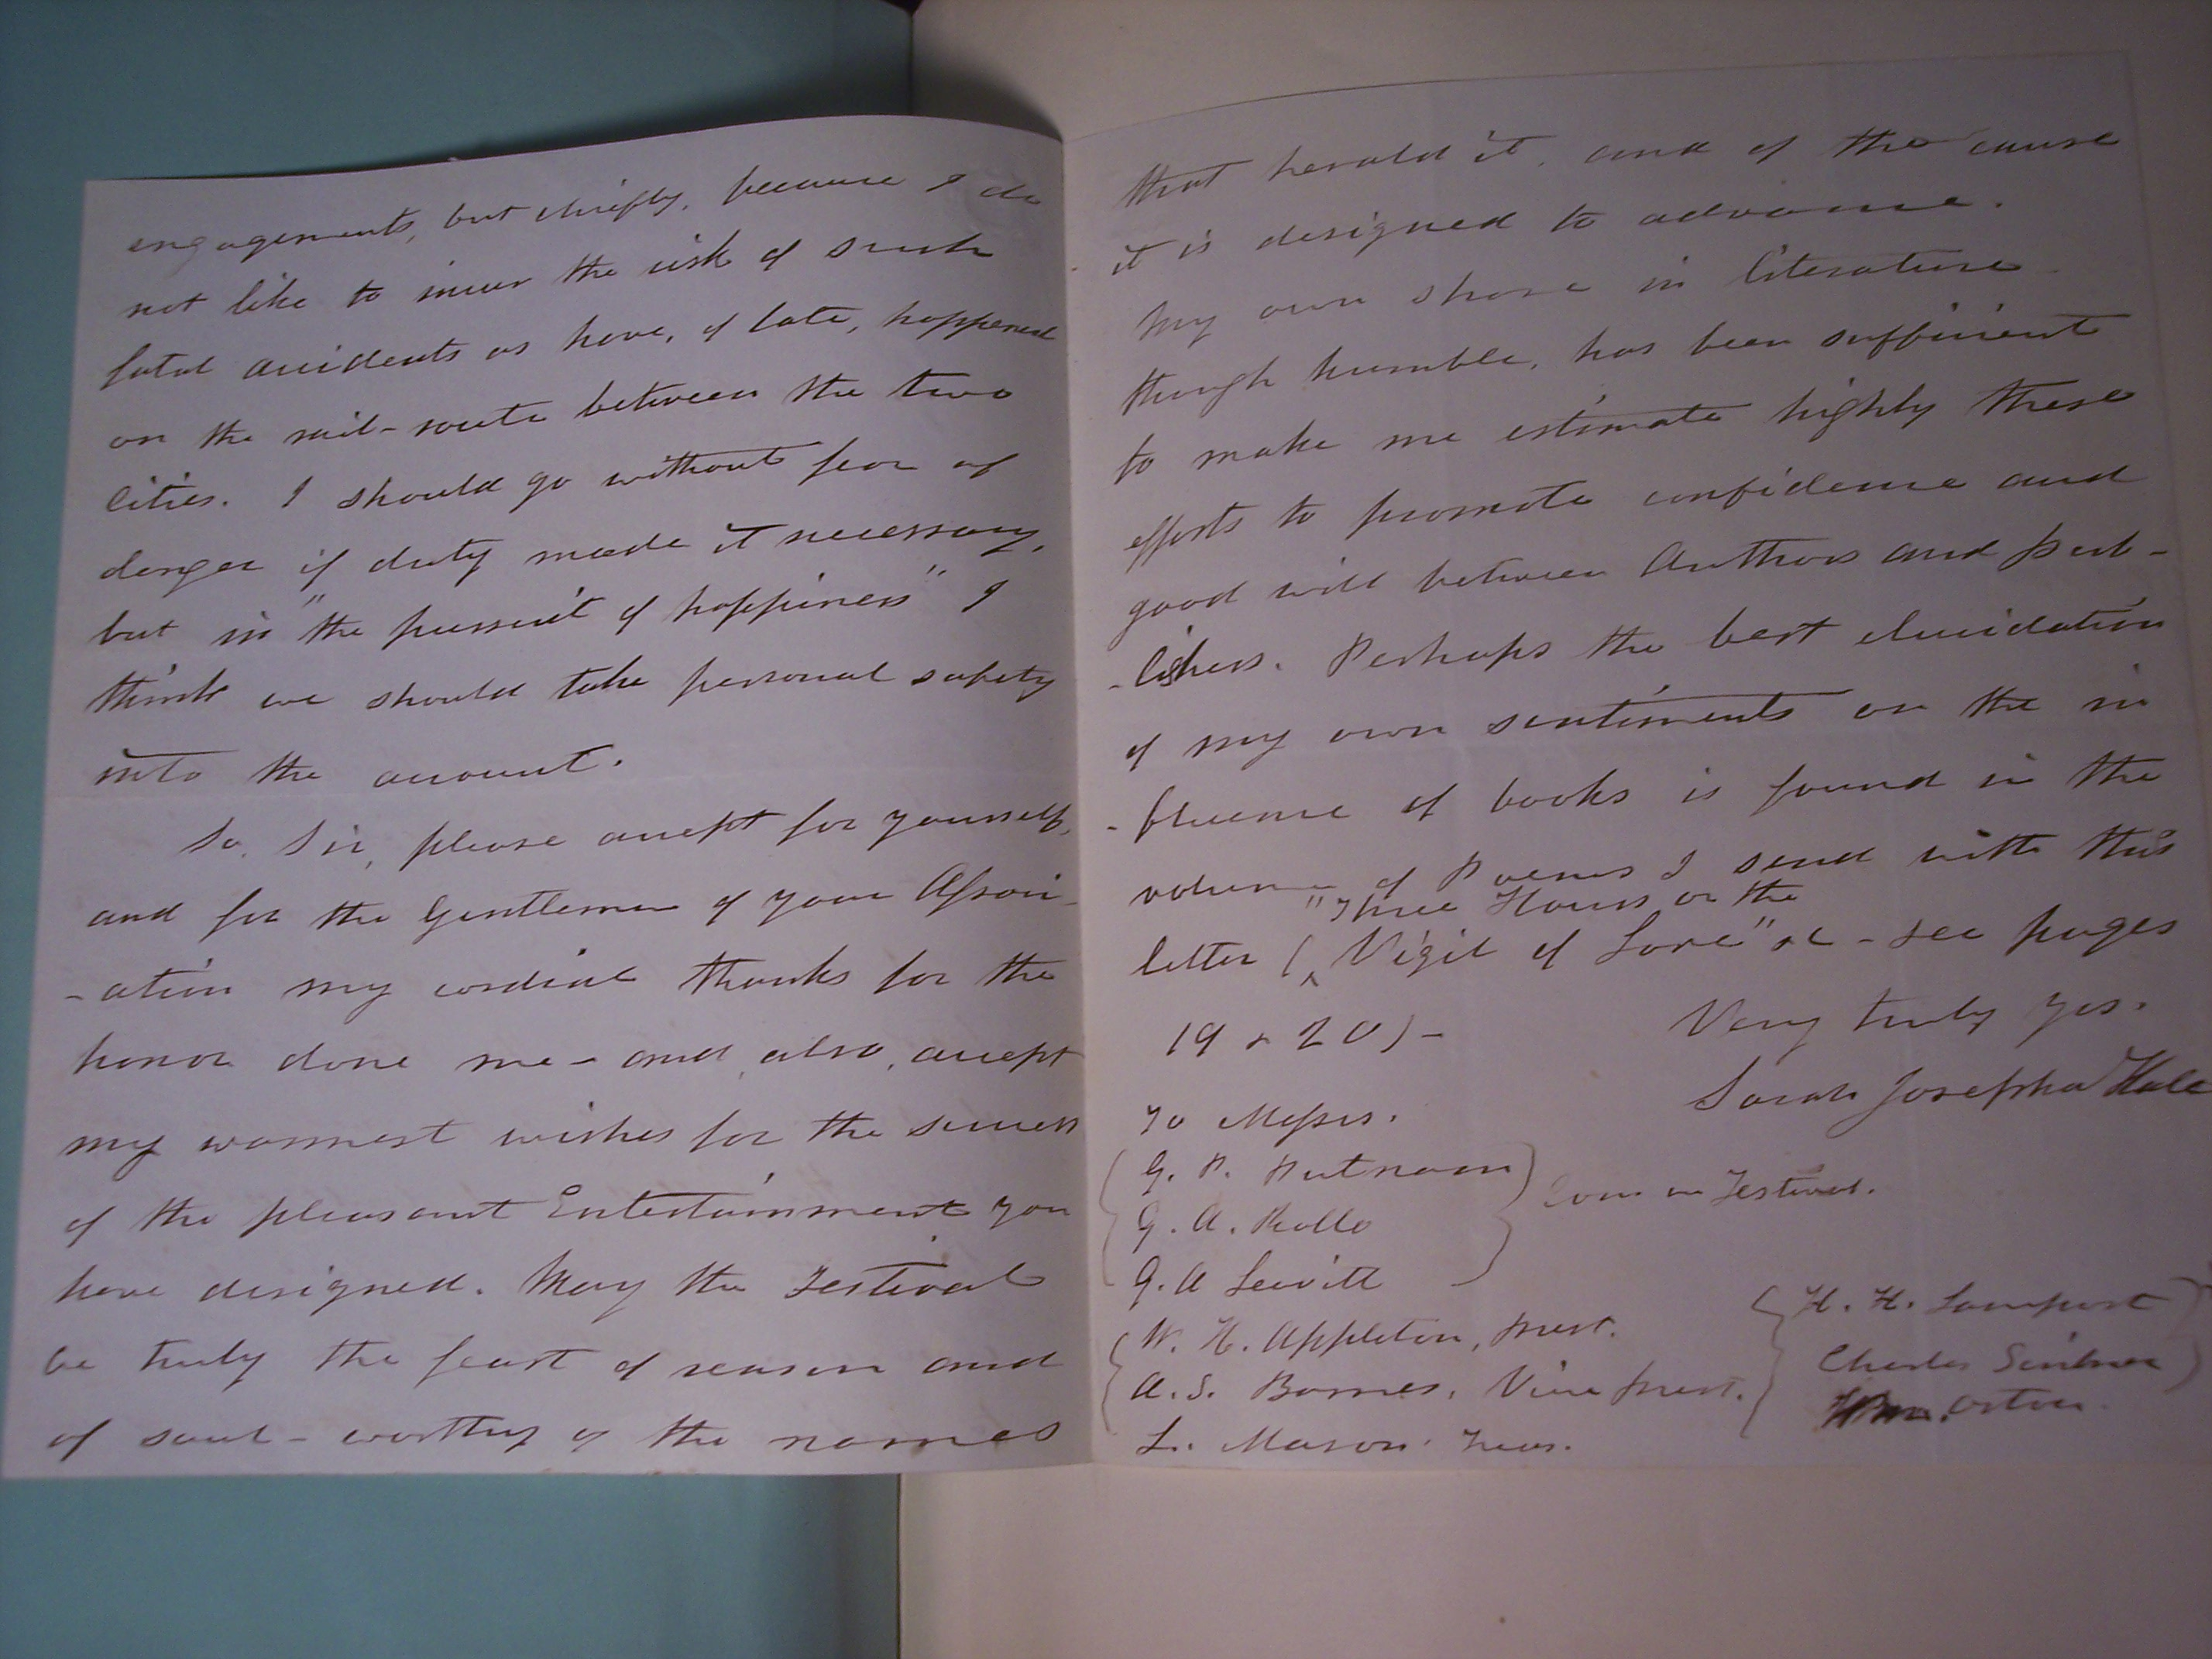 engagements, but chiefly, because I do
not like to incur the risk of such
fatal accidents as have, of late, happened
on the rail-route between the two
cities. I should go without fear of
danger if duty made it necessary,
but in "the pursuit of happiness" I
think we should take personal safety
into the account.
So, Sir, please accept for yourself,
and for the Gentlemen of your Associ-
-ation my cordial thanks for the
honor done me - and, also, accept
my warmest wishes for the success
of the pleasant Entertainment you
have designed. May the Festival
be truly the feast of reason and
of soul - worthy of the names
that herald it, and of the cause
it is designed to advance.
My own share in literature
though humble, has been sufficient
to make me estimate highly these
efforts to promote confidence and
good will between Authors and Pub-
-lishers. Perhaps the best elucidation
of my own sentiments on the in
-fluence of books is found in the
volume of Poems I send with this
"Three Hours or the
letter ( Vigil of Love" &c - see pages
19 & 20) -
Very truly yrs.
Sarah Josepha Hale
To Messrs.
G. P. Putnam
G. A. Rollo
Com on Festival.
G. A Leavitt
W. H. Appleton, Prest.
A. S. Barnes, Vice Prest.
L. Mason Treas.
H. H. Lamport
Charles Scribner
Wm. Orton.